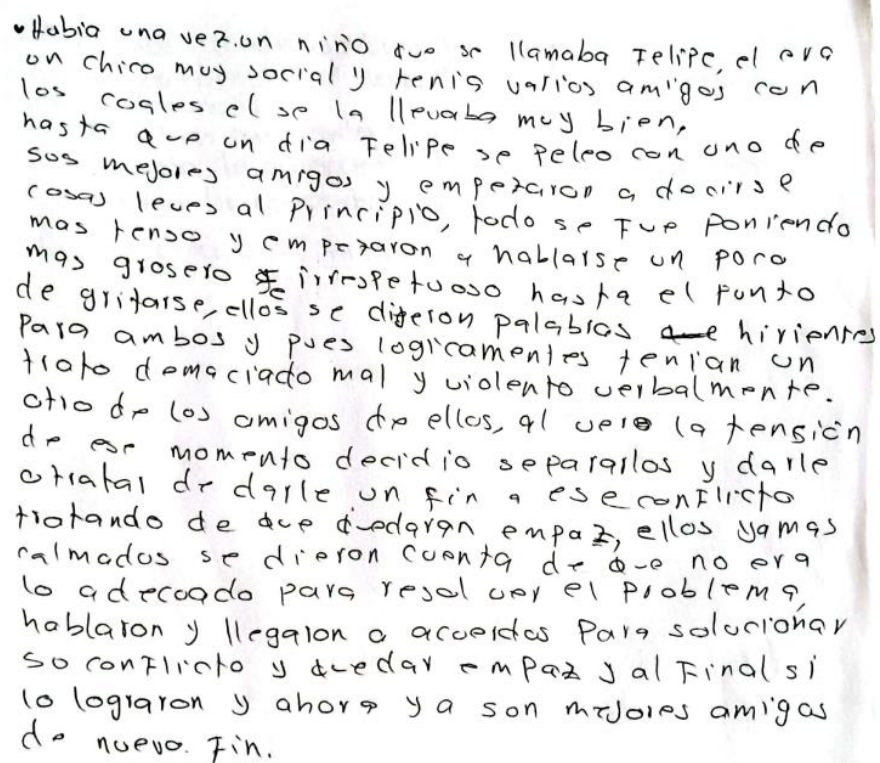 • Habia una vez.un niño que se llamaba Felipe, el era
un chico muy social y tenia varios amigos con
los cuales el se la llevaba muy bien,
hasta que un dia Felipe se peleo con uno de
sus mejores amigos y empezaron a decirse
cosas leves al Principio, todo se fue poniendo
mas tenso y empezaron a hablarse un poco
mas grosero e irrespetuoso hasta el punto
de gritarse, ellos se digeron palabras hirientes
Para ambos y pues logicamentes tenian un
trato demaciado mal y violento verbalmente.
otro de los amigos de ellos, al vere la tensión
de ese momento decidio separarlos y darle
otratar de darle un fin a ese conflicto
tratando de que quedaran empaz, ellos yamas
calmados se dieron cuenta de que no era
lo adecuado para resolver el problema,
hablaron y llegaron a acuerdos Para solucionar
su conflicto y quedar empaz y al Final si
lo lograron y ahora ya son mejores amigos
de nuevo. Fin.